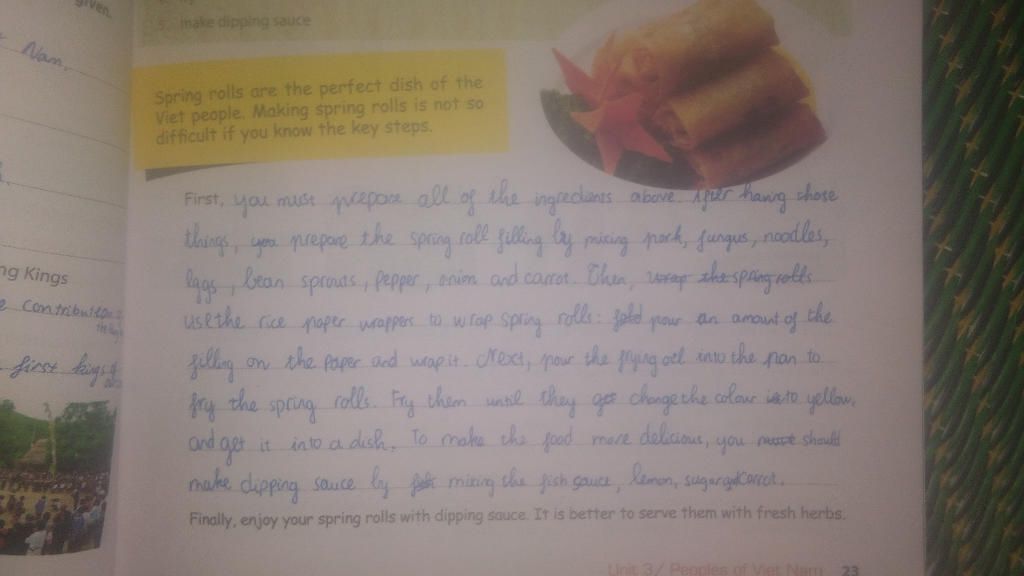 given.
Nan,
5. make dipping sauce
Spring rolls are the perfect dish of the
Viet people. Making spring rolls is not so
difficult if you know the key steps.
First, you must prepare all of the ingredients above. After having those
things, you prepare the spring roll filling by mixing pork, fungus, noodles,
eggs, bean sprouts, pepper, onion and carrot. Then, wrap the spring rolls
use the rice paper wrappers to wrap spring rolls: fold pour an amount of the
filling on the paper and wrap it. Next, pour the frying oil into the pan to
fry the spring rolls. Fry them until they get change the colour is to yellow,
and get it into a dish. To make the food more delicious, you must should
make dipping sauce by mixing the fish sauce, lemon, sugar and carrot.
Finally, enjoy your spring rolls with dipping sauce. It is better to serve them with fresh herbs.
ng Kings
contribution
first kings
Unit 3/ Peoples of Viet Nam 23